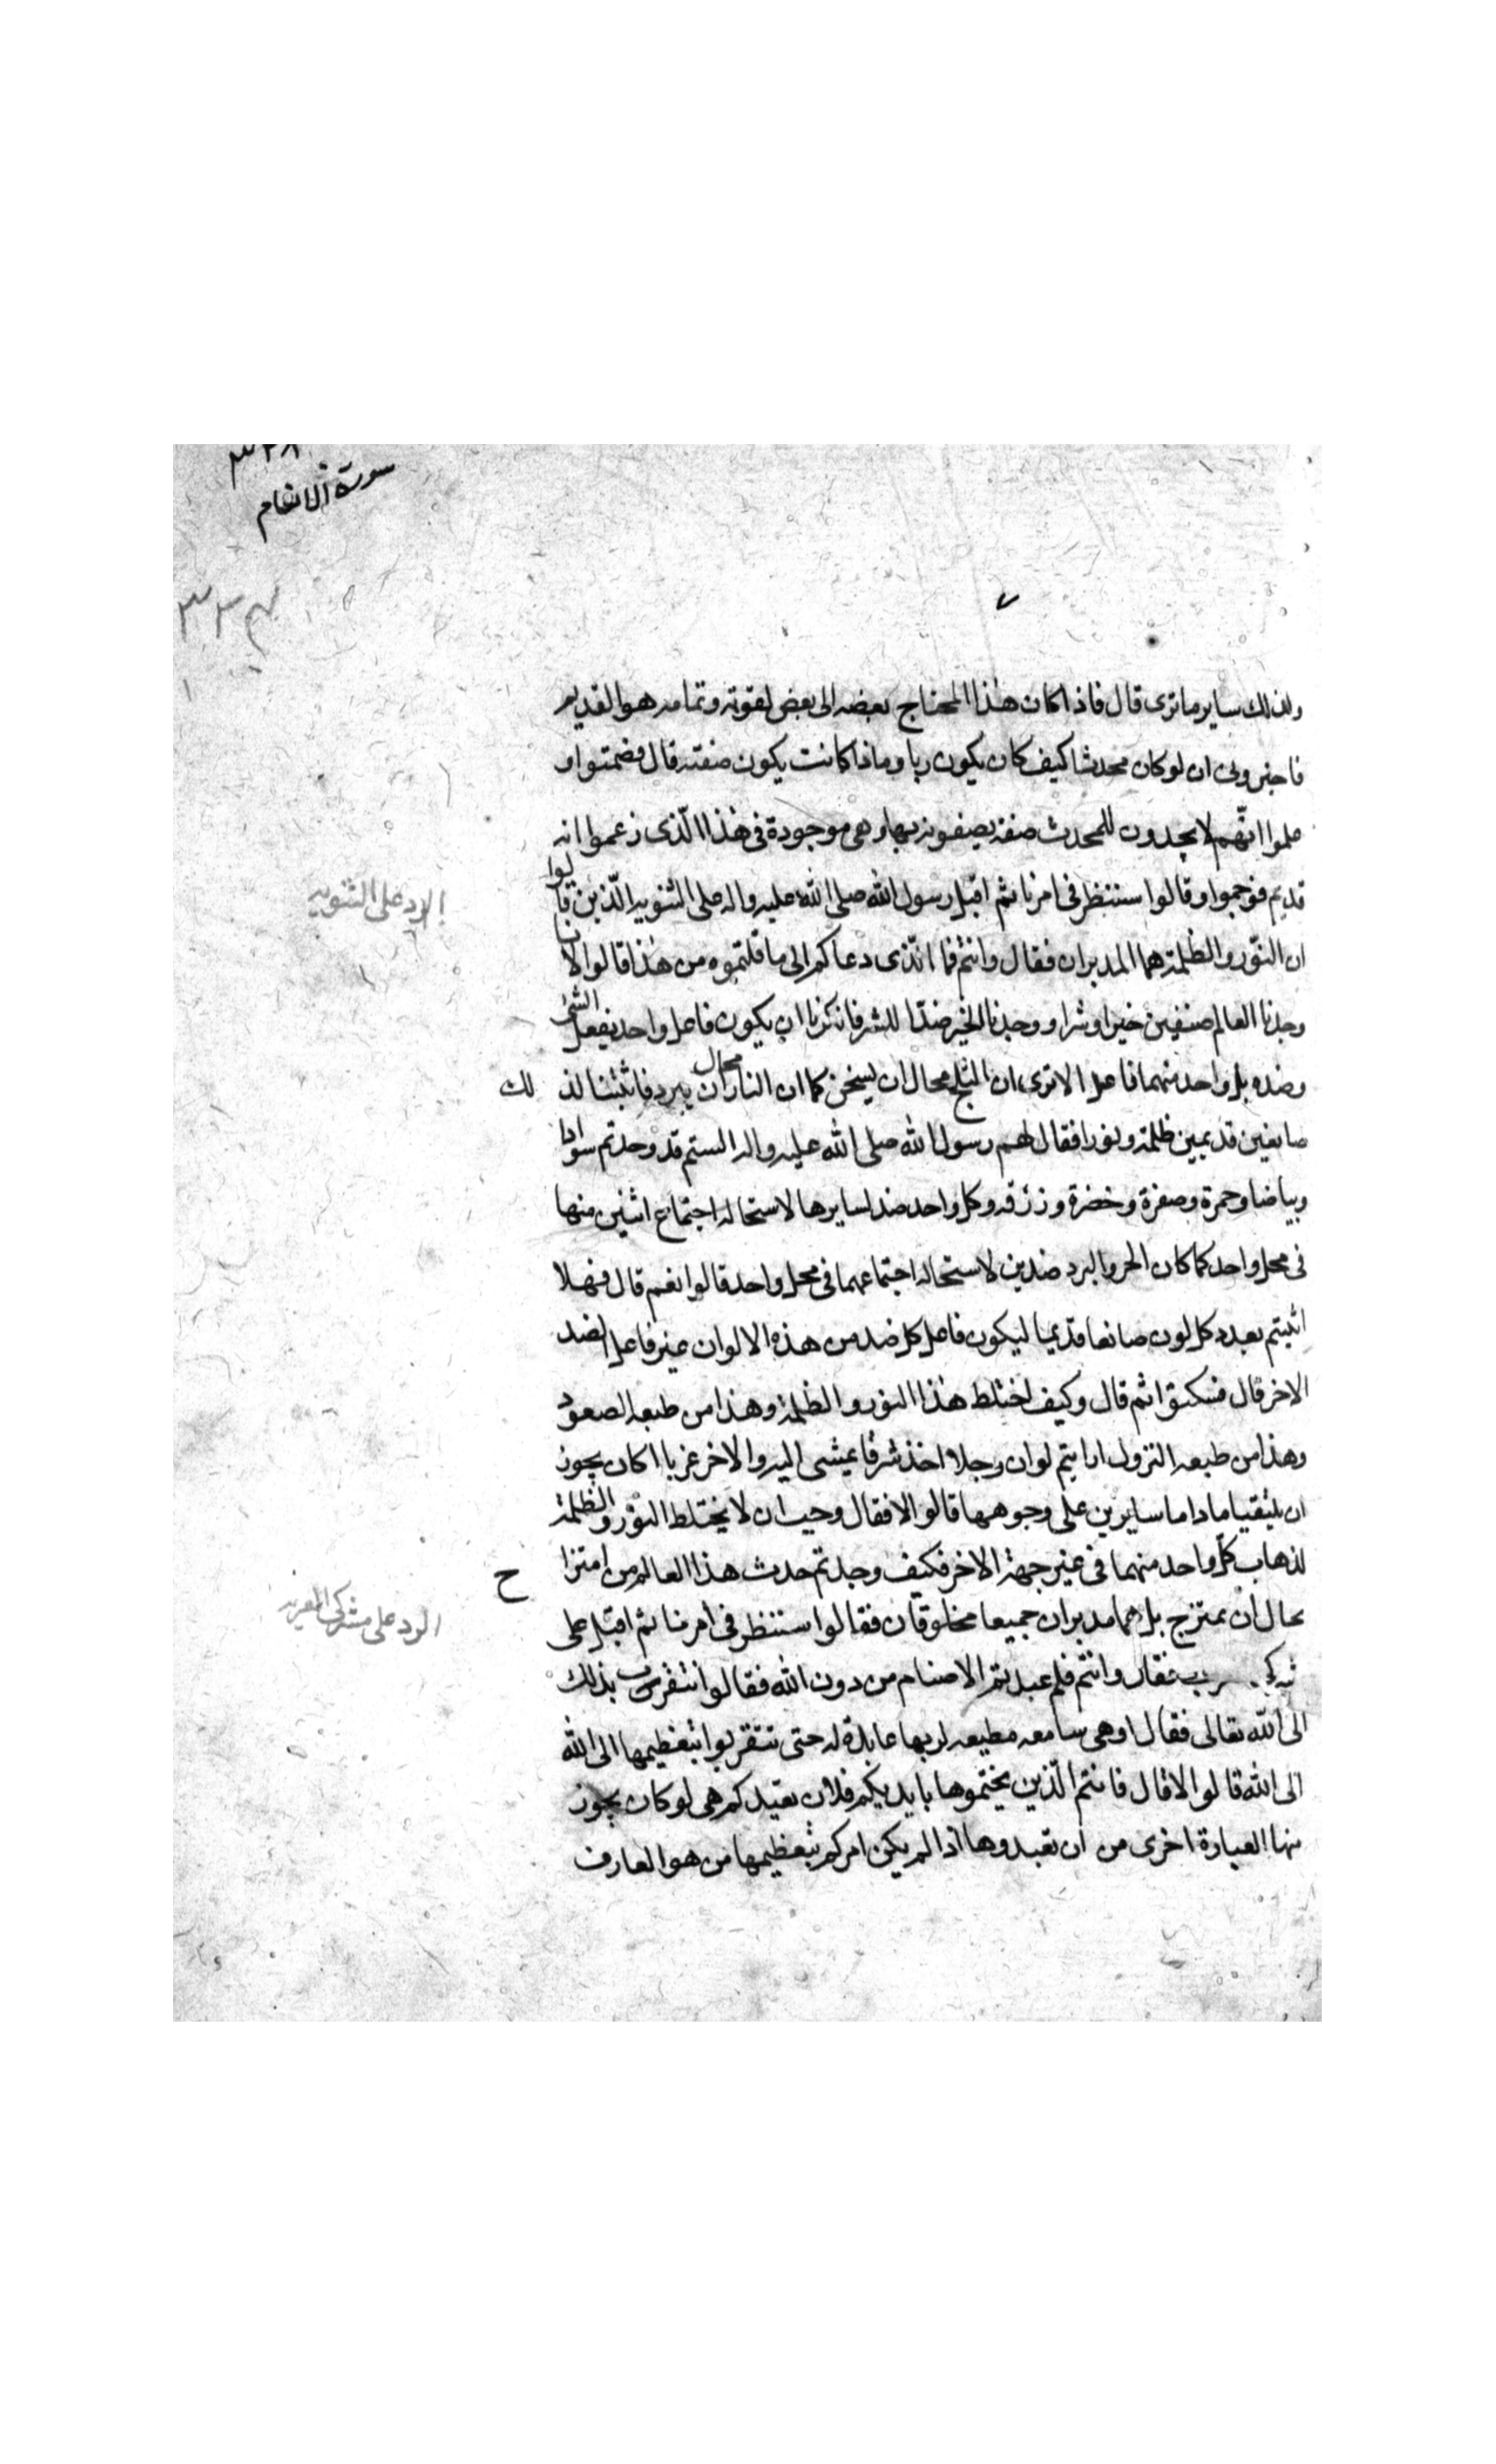 سورة الانعام
وكذلك ساير ما ترى قال فاذا كان هذا المحتاج بعضه الى بعض لقوته وتمامه هو القديم
فاخبرونى ان لو كان محدثا كيف كان يكون وما ذا كانت يكون صفته قال فصمتوا و
علموا انهم لا يجدون للمحدث صفة يصفونه بها وهى موجودة فى هذا الذى زعموا انه
قديم فوجموا وقالوا سننظر فى امرنا ثم اقبل رسول الله صلى الله عليه واله على الثنويه الذين قالوا
الرد على الثنويه
ان النور والظلمة هما المدبران فقال وانتم فما الذى دعاكم الى ما قلتموه من هذا قالوا لانا
وجدنا العالم صنفين خيرا وشرا ووجدنا الخير ضدا للشر فانكرنا ان يكون فاعل واحد يفعل الشئ
وضده بل واحد منهما فاعل الا ترى ان الثلج محال ان يسخن كما ان النار محال ان يبرد فاثبتنا لذ لك
صانعين قديمين ظلمة ونورا فقال لهم رسول الله صلى الله عليه واله الستم قد وجدتم سوادا
وبياضا وحمرة وصفرة وخضرة وزرقه وكل واحد ضد لسايرها لاستحاله اجتماع اثنين منها
فى محل واحد كما كان الحر والبرد ضدين لاستحاله اجتماعهما فى محل واحد قالوا نعم قال فهلا
اثبتم بعدد كل لون صانعا قديما ليكون فاعل كل ضد من هذه الالوان غير فاعل الضد
الاخر قال فسكتوا ثم قال وكيف اختلط هذا النور والظلمة وهذا من طبعه الصعود
وهذا من طبعه النزول ارايتم لو ان رجلا اخذ شرقا يمشى اليه والاخر غربا اكان يجوز
ان يلتقيا ما داما سايرين على وجوههما قالوا لا فقال وجب ان لا يختلط النور والظلمة
لذهاب كل واحد منهما فى غير جهة الاخر فكيف وجدتم حدث هذا العالم من امتزا ح
محال ان يمتزج بل هما مدبران جميعا مخلوقان فقالوا سننظر فى امرنا ثم اقبل على
الرد على مشركى العرب
فقال وانتم فلم عبدتم الاصنام من دون الله فقالوا نتقرب بذلك
الى الله تعالى فقال اوهى سامعه مطيعه لربها عابدة له حتى تتقربوا بتعظيمها الى الله
الى الله قالوا لا قال فانتم الذين يختموها بايديكم فلان تعبدكم هى لو كان يجوز
منها العبادة اخرى من ان تعبدوها اذا لم يكن امركم بتعظيمها من هو العارف